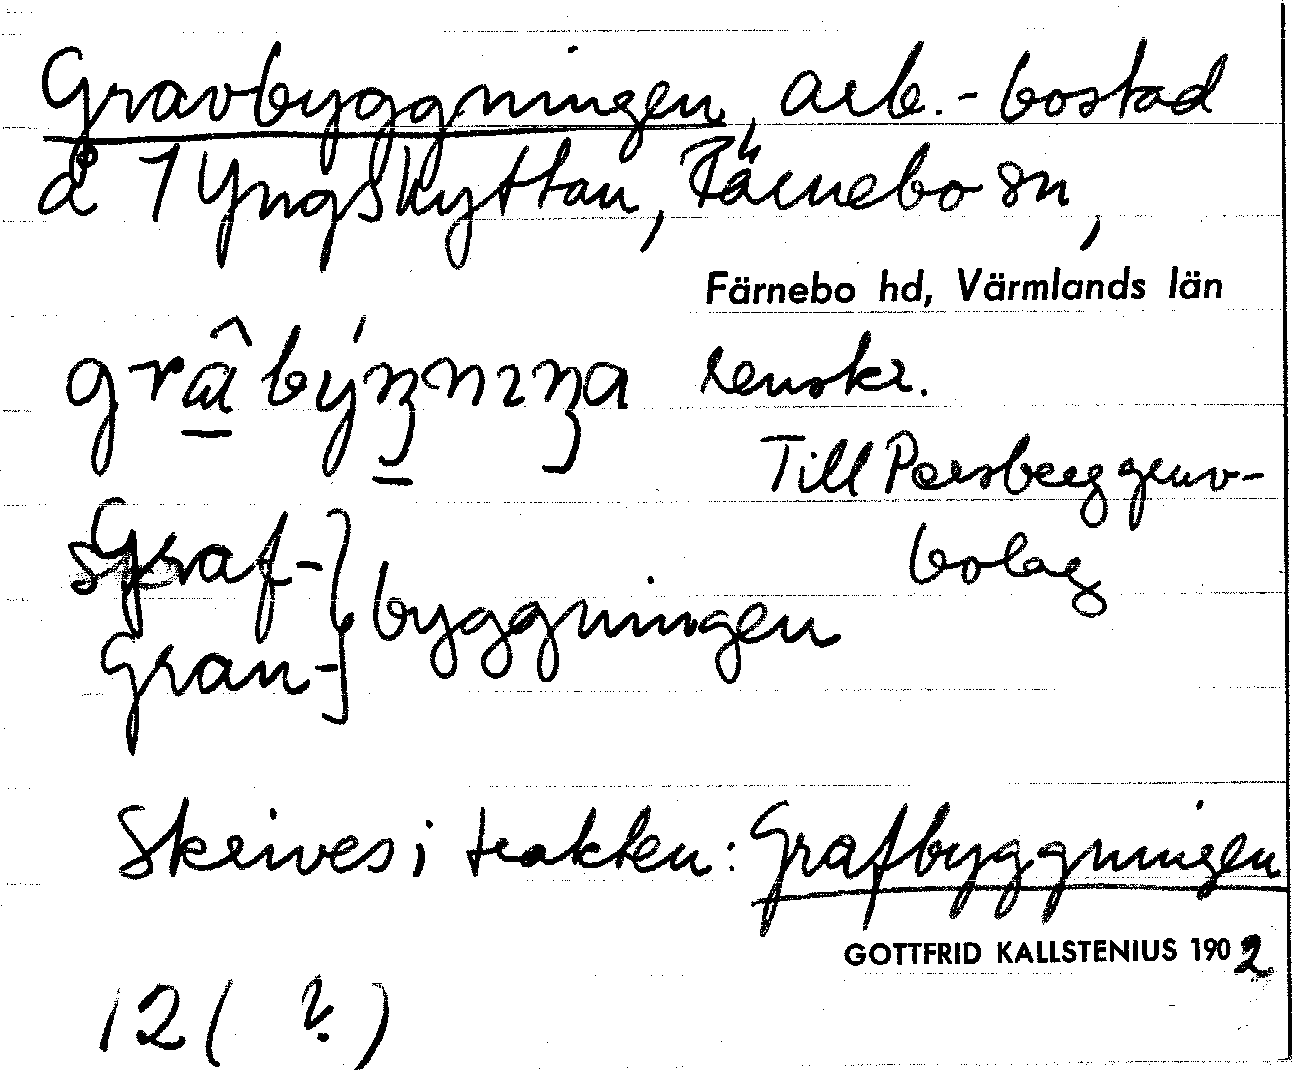 Gravbyggningen, arb.-bostad
å 1 Yngshyttan, Färnebo sn,
Färnebo hd, Värmlands län
renskr.
Till Persberg gruv-
bolag
Graf-
Gran- } byggningen
Skrives i trakten: Grafbyggningen
GOTTFRID KALLSTENIUS 1902
12 ( ? )